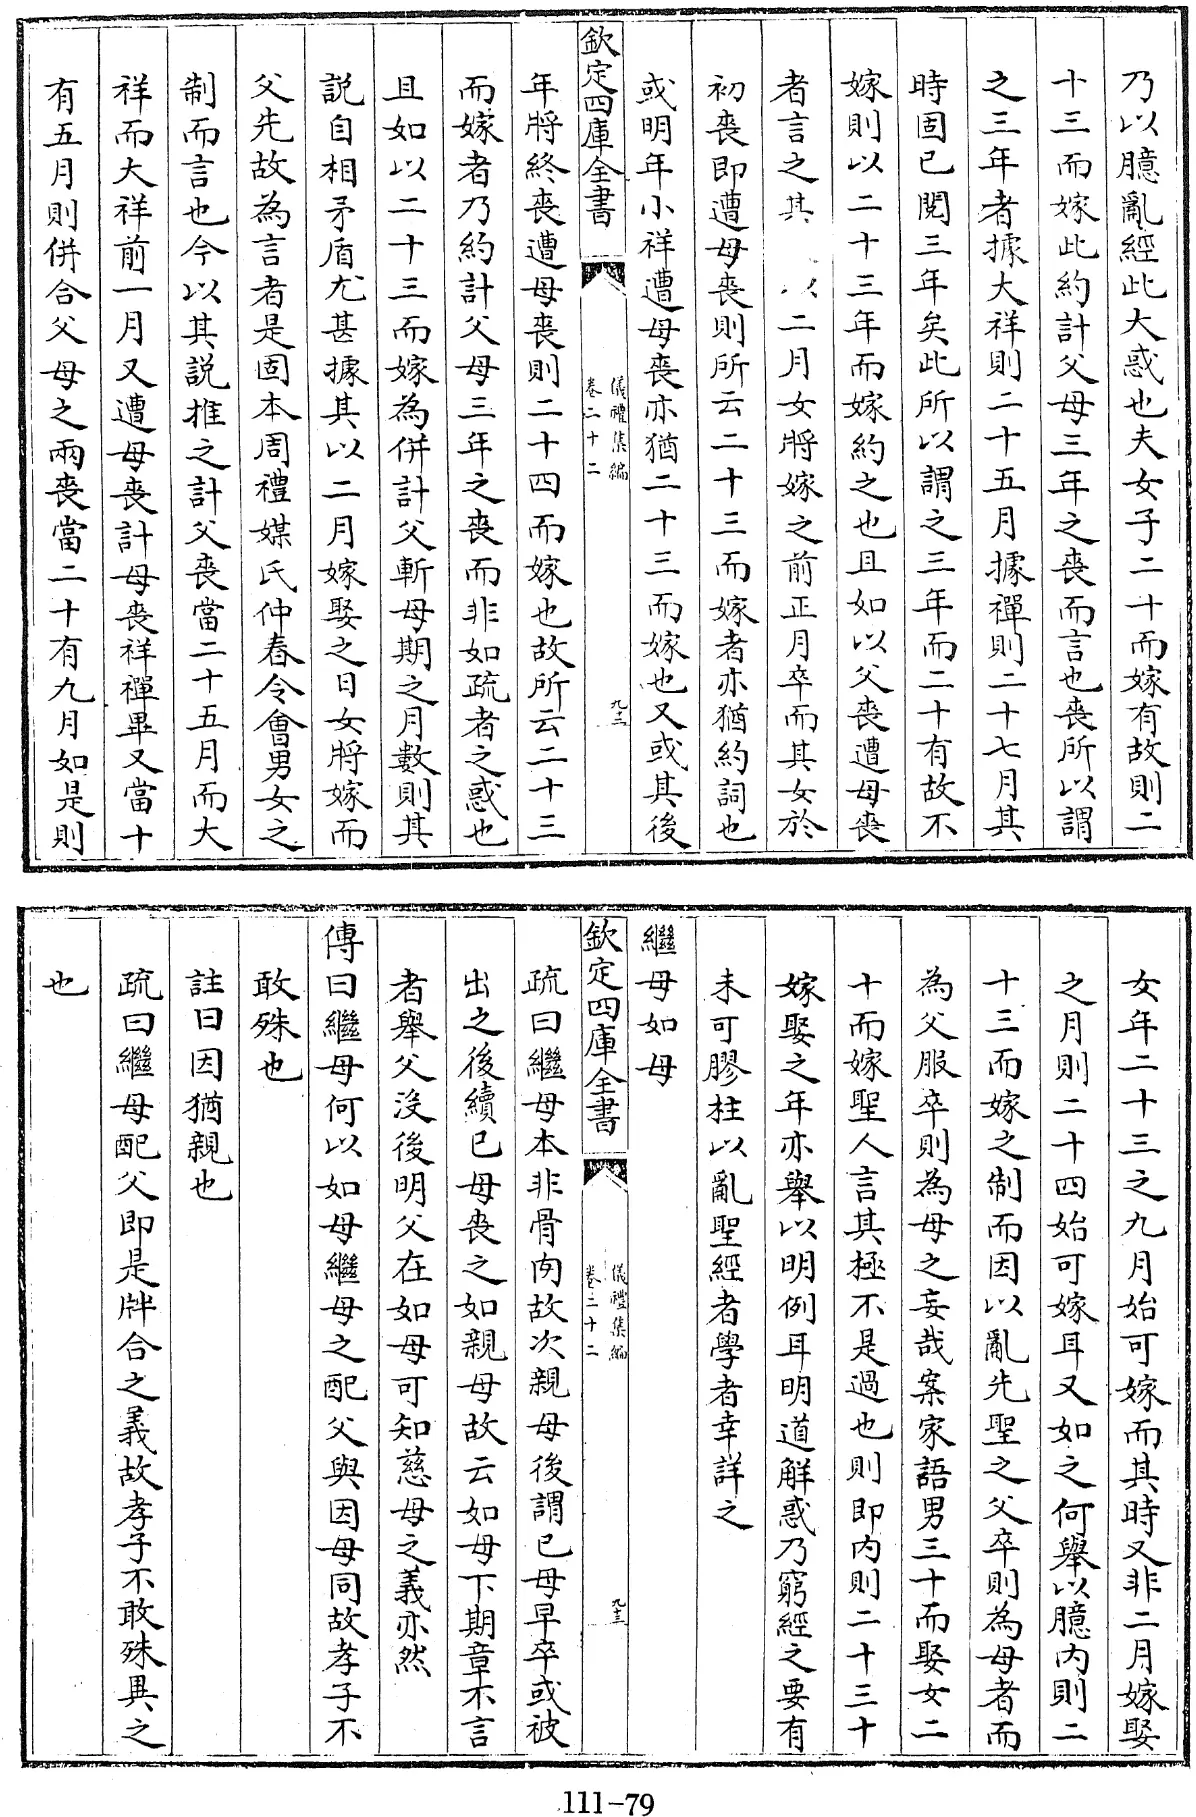 乃以臆亂經此大惑也夫女子二十而嫁有故則二
十三而嫁此約計父母三年之喪而言也喪所以謂
之三年者據大祥則二十五月據禫則二十七月其
時固已閱三年矣此所以謂之三年而二十有故不
嫁則以二十三年而嫁約之也且如以父喪遭母喪
者言之其 以二月女將嫁之前正月卒而其女於
初喪即遭母喪則所云二十三而嫁者亦猶約詞也
或明年小祥遭母喪亦猶二十三而嫁也又或其後
欽定四庫全書
儀禮集編
卷二十二
九二
年將終喪遭母喪則二十四而嫁也故所云二十三
而嫁者乃約計父母三年之喪而非如疏者之惑也
且如以二十三而嫁為併計父斬母期之月數則其
説自相矛盾尤甚據其以二月嫁娶之日女將嫁而
父先故為言者是固本周禮媒氏仲春令會男女之
制而言也今以其説推之計父喪當二十五月而大
祥而大祥前一月又遭母喪計母喪祥禫畢又當十
有五月則併合父母之兩喪當二十有九月如是則
女年二十三之九月始可嫁而其時又非二月嫁娶
之月則二十四始可嫁耳又如之何舉以臆内則二
十三而嫁之制而因以亂先聖之父卒則為母者而
為父服卒則為母之妄哉案家語男三十而娶女二
十而嫁聖人言其極不是過也則即内則二十三十
嫁娶之年亦舉以明例耳明道解惑乃窮經之要有
未可膠柱以亂聖經者學者幸詳之
繼母如母
欽定四庫全書
儀禮集編
卷二十二
九三
疏曰繼母本非骨肉故次親母後謂已母早卒或被
出之後續已母喪之如親母故云如母下期章不言
者舉父沒後明父在如母可知慈母之義亦然
傳曰繼母何以如母繼母之配父與因母同故孝子不
敢殊也
註曰因猶親也
疏曰繼母配父即是牉合之義故孝子不敢殊異之
也
111-79